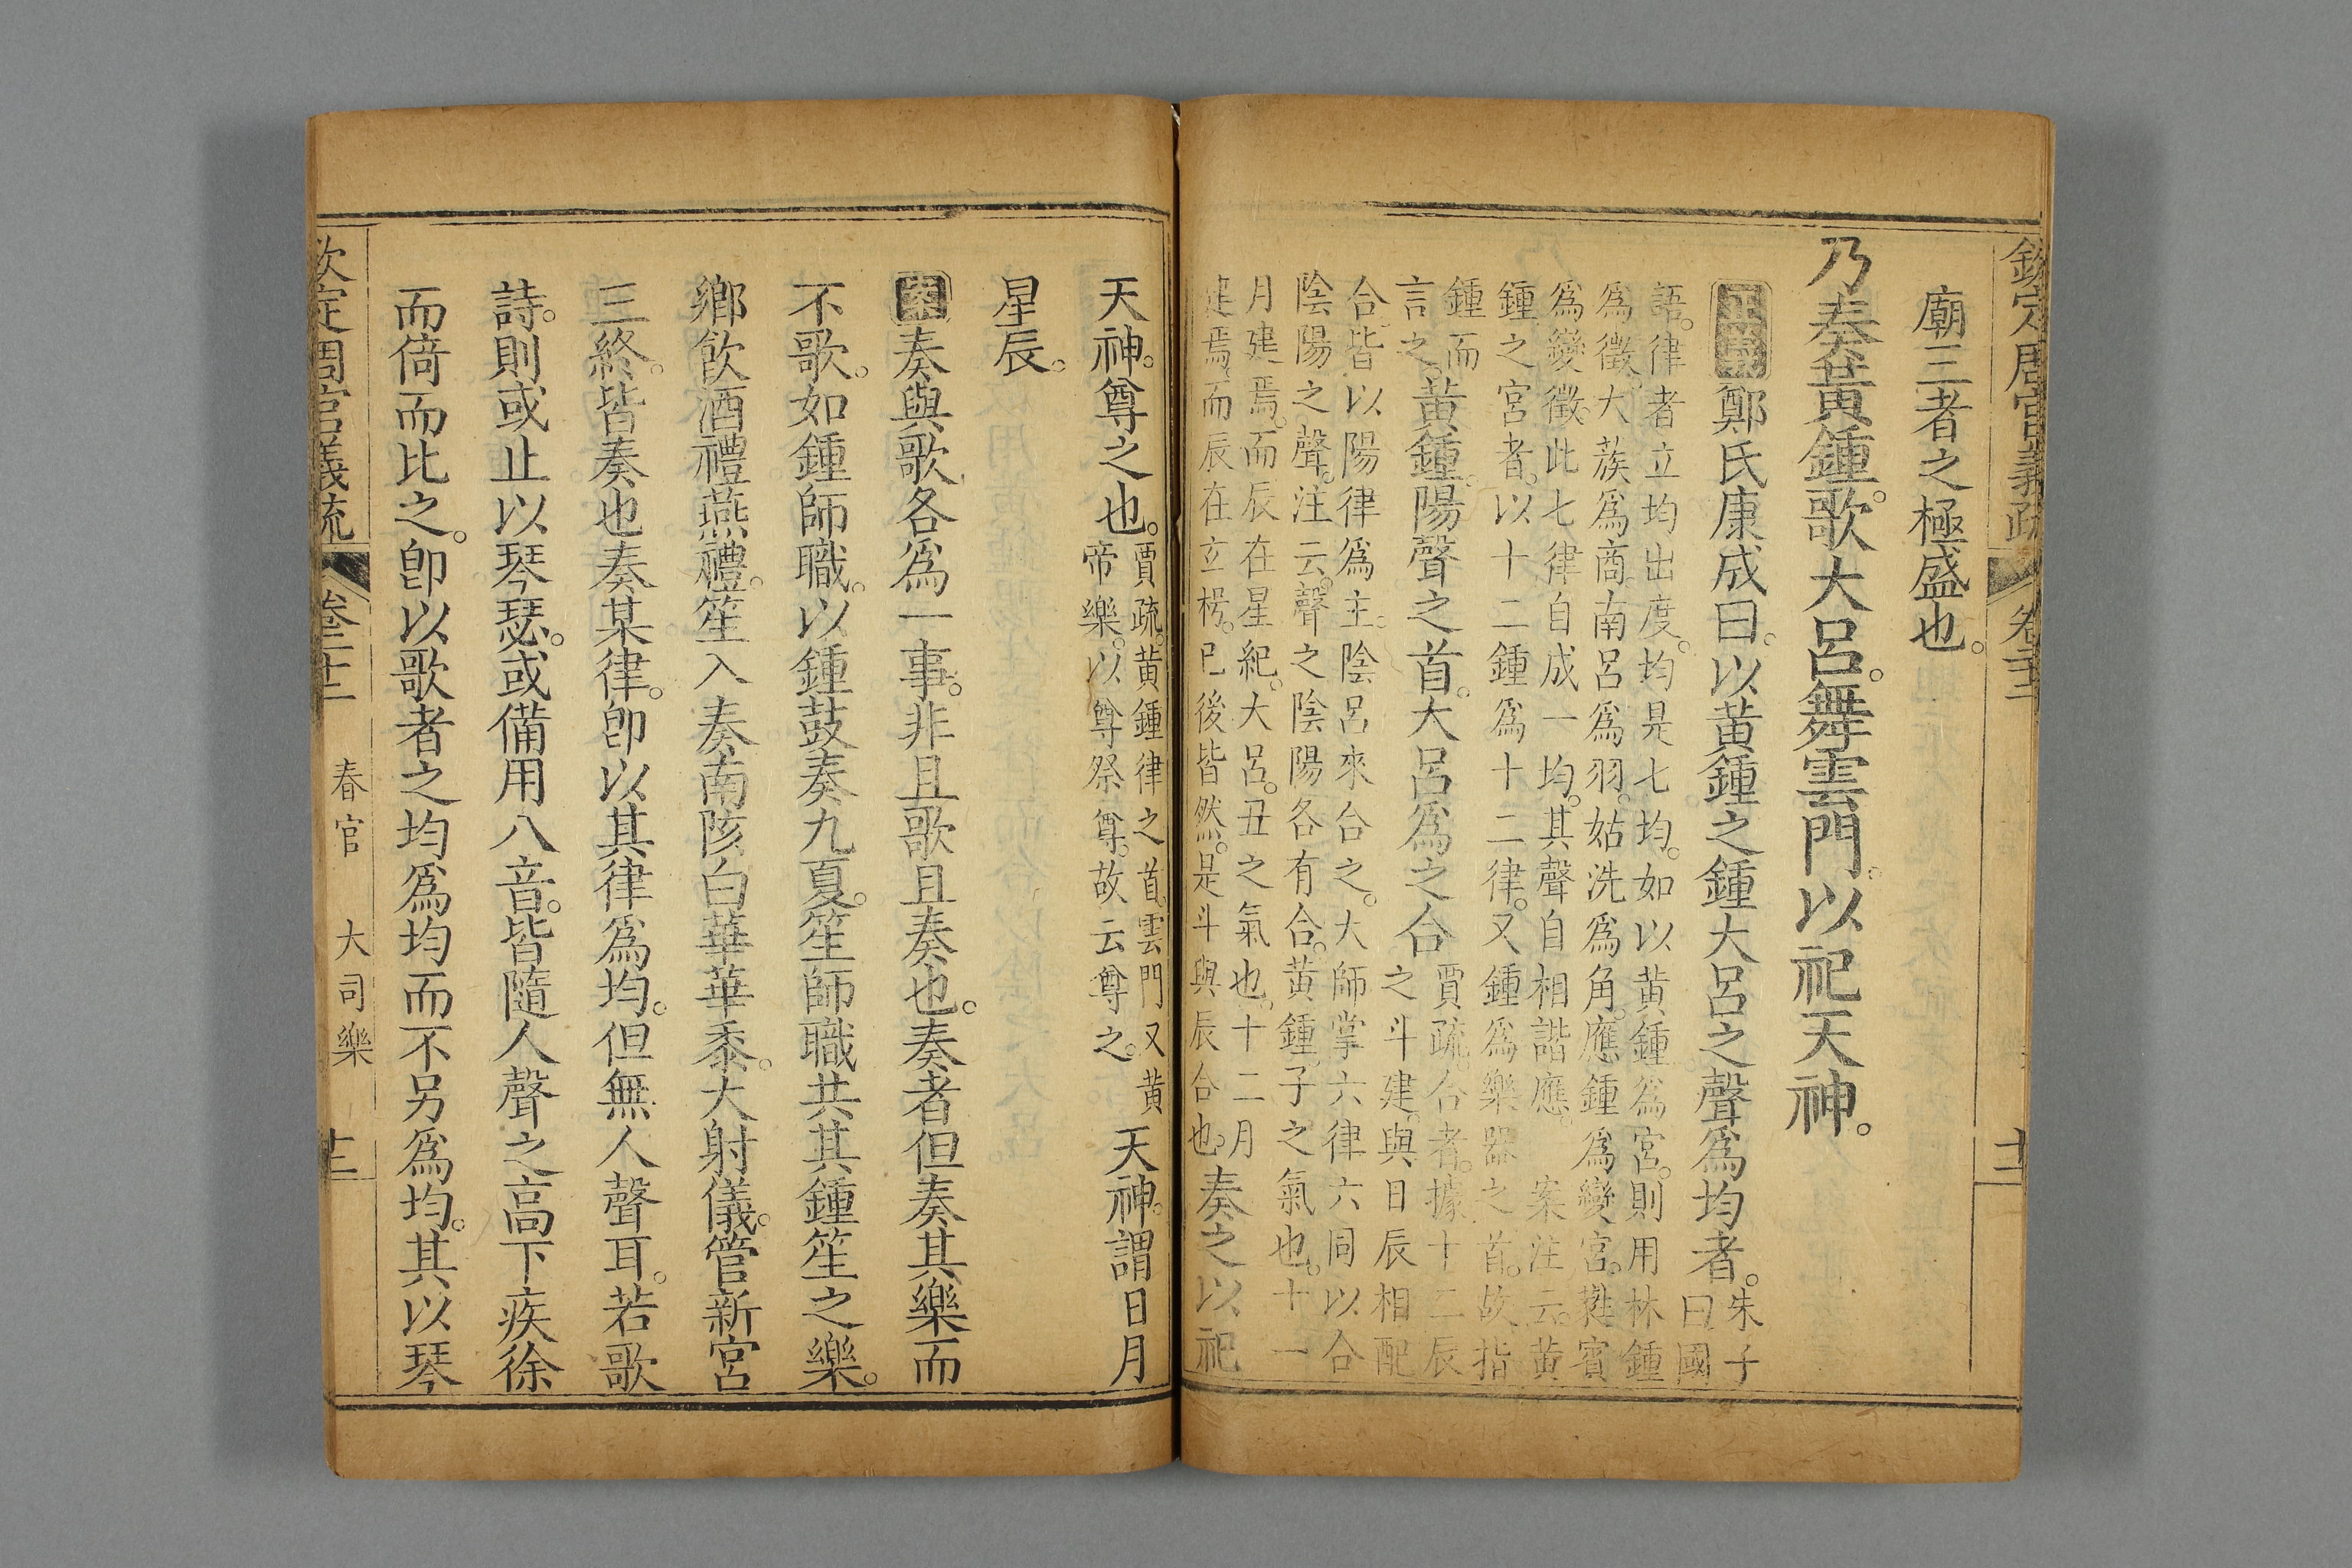 欽定周官義疏 卷二十二 十二
廟三者之極盛也。
乃奏黃鍾。歌大呂。舞雲門。以祀天神。
正義鄭氏康成曰。以黃鍾之鍾大呂之聲爲均者。朱子
曰國
語。律者立均出度。均是七均。如以黃鍾爲宮。則用林鍾
爲徵。大蔟爲商。南呂爲羽。姑洗爲角。應鍾爲變宮。蕤賓
爲變徵。此七律自成一均。其聲自相諧應。 案注云。黃
鍾之宮者。以十二鍾爲十二律。又鍾爲樂器之首。故指
鍾而
言之。黃鍾。陽聲之首。大呂爲之合賈疏。合者。據十二辰
之斗建。與日辰相配
合皆以陽律爲主。陰呂來合之。大師掌六律六同以合
陰陽之聲。注云。聲之陰陽各有合。黃鍾。子之氣也。十一
月建焉。而辰在星紀。大呂。丑之氣也。十二月
建焉。而辰在立枵。已後皆然。是斗與辰合也。奏之以祀
天神。尊之也。賈疏。黃鍾律之首。雲門又黃
帝樂。以尊祭尊。故云尊之。天神。謂日月
星辰。
案奏與歌各爲一事。非且歌且奏也。奏者但奏其樂而
不歌。如鍾師職。以鍾鼓奏九夏。笙師職共其鍾笙之樂。
鄉飲酒禮燕禮。笙入奏南陔白華華黍。大射儀。管新宮
三終。皆奏也奏某律。卽以其律爲均。但無人聲耳。若歌
詩。則或止以琴瑟。或備用八音。皆隨人聲之高下疾徐
而倚而比之。卽以歌者之均爲均而不另爲均。其以琴
欽定周官義疏 卷二十二 春官 大司樂